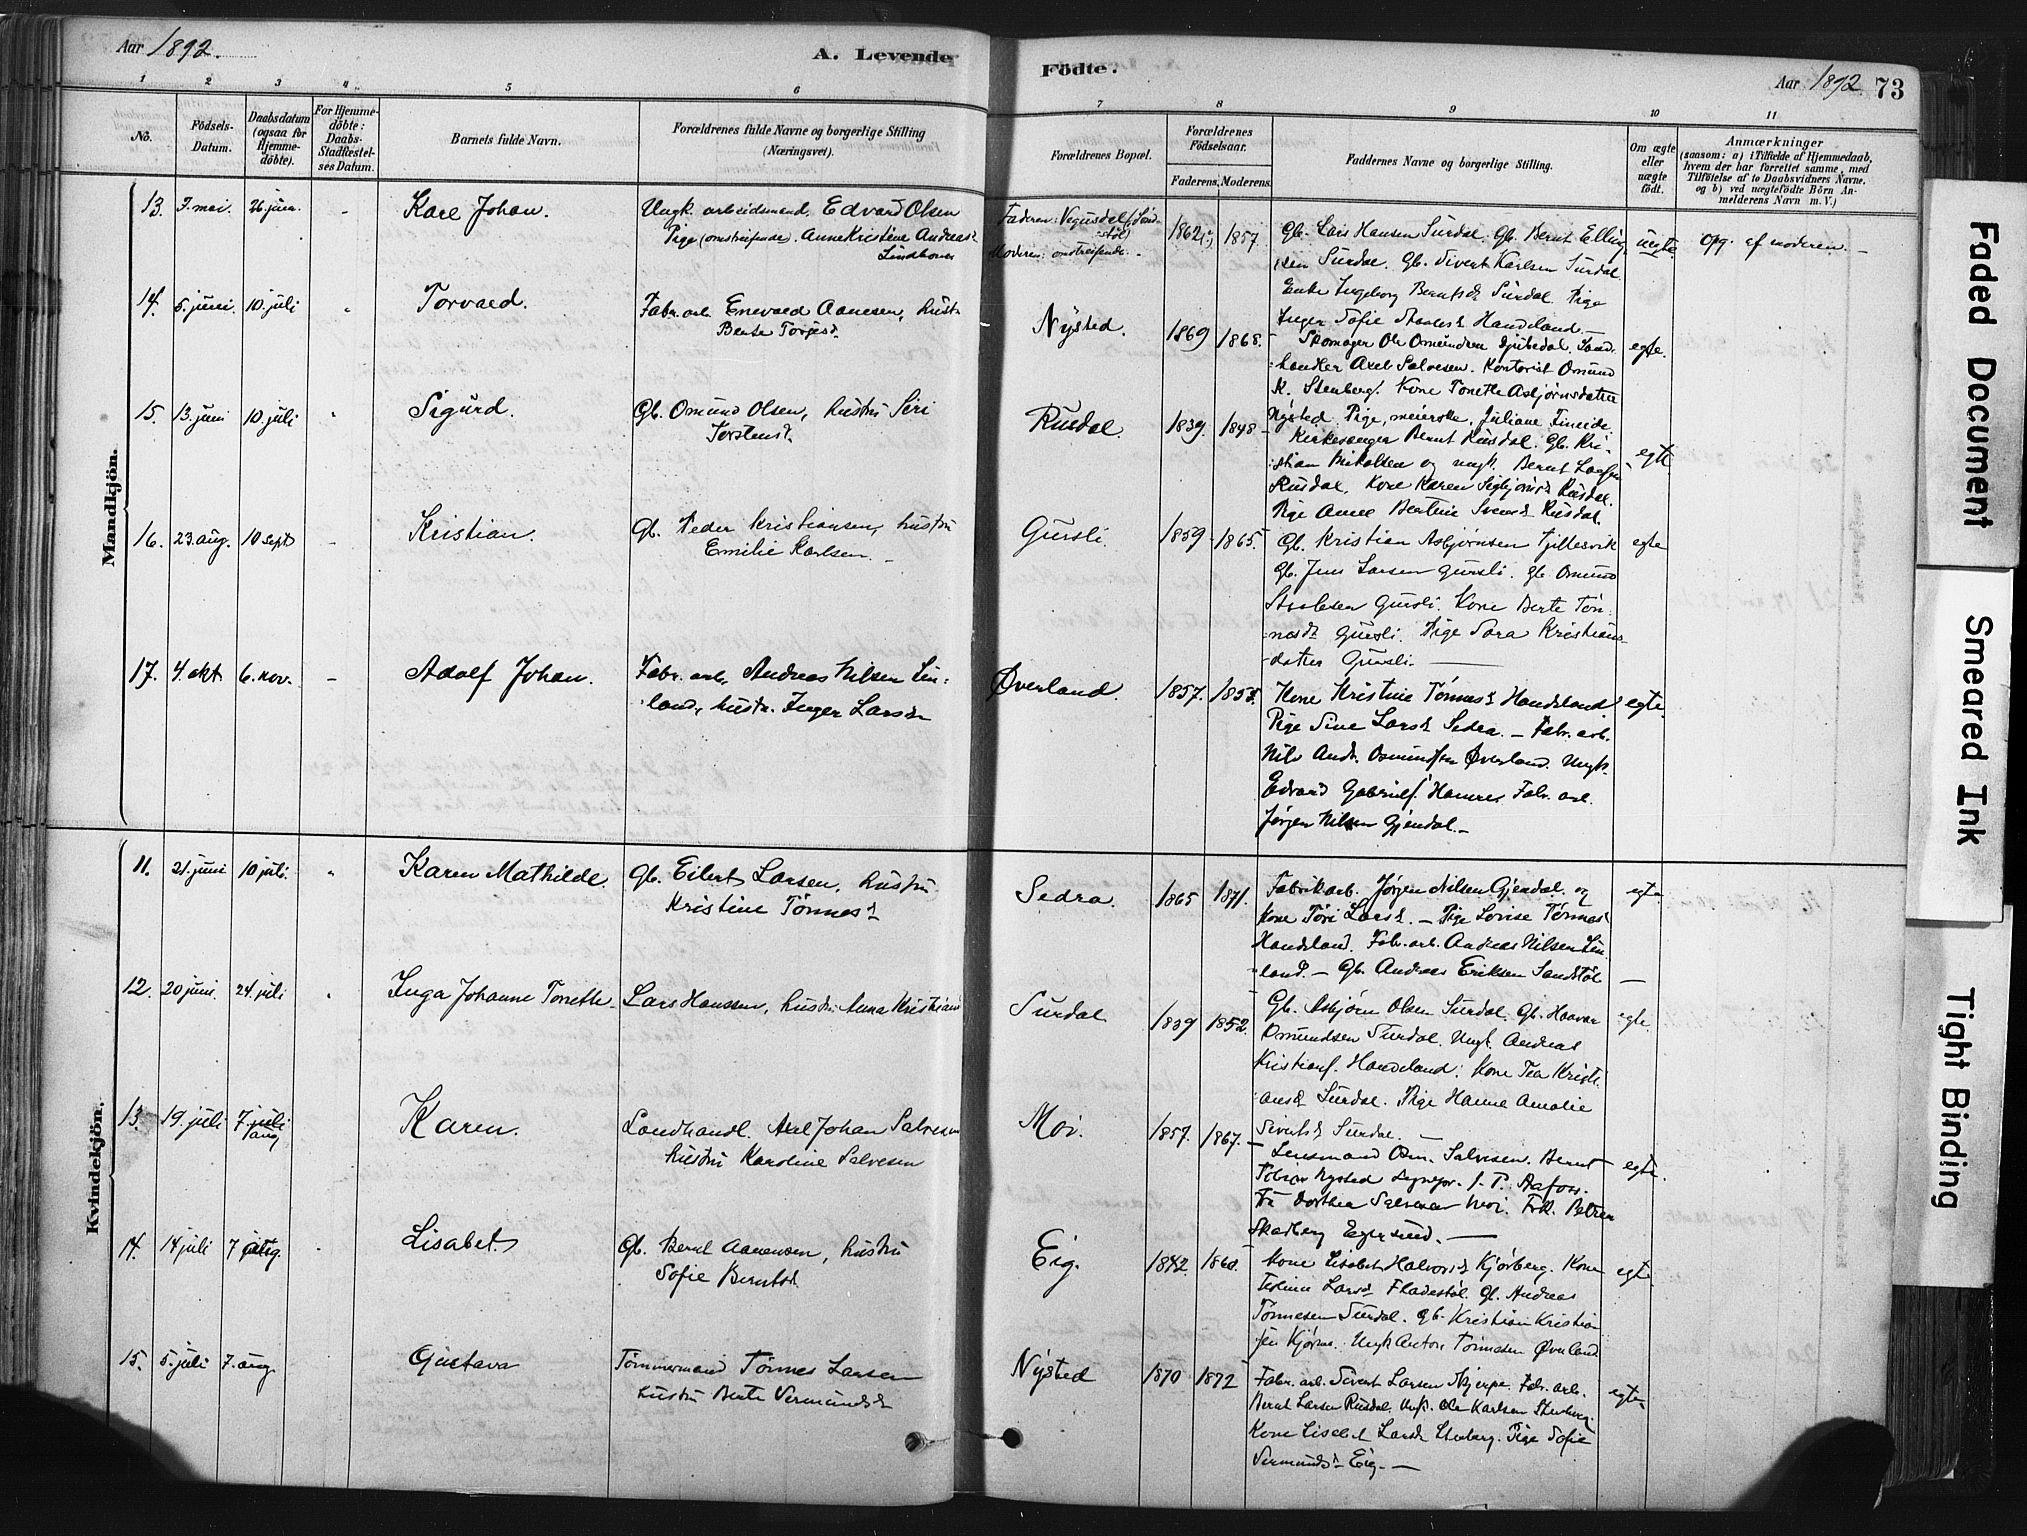 Aar 1892.
A. Levende
Födte.
Aar 1892
73
1 2 3 4 5 6 7 8 9 10 11
No.
Födsels-
Datum.
Daabsdatum
(ogsaa för
Hjemme-
döbte).
For Hjemme-
döbte:
Daabs-
Stadfæstel-
ses Datum.
Barnets fulde Navn.
Forældrenes fulde Navne og borgerlige Stilling
(Næringsvei).
Forældrenes Bopæl.
Forældrenes
Födselsaar.
Faderens. Moderens.
Faddernes Navne og borgerlige Stilling.
Om ægte
eller
uægte
födt.
Anmærkninger
(saasom: a) i Tilfælde af Hjemmedaab,
hvem der har forrettet samme, med
Tilföielse af to Daabsvidners Navne,
og b) ved uægtefödte Börn An-
melderens Navn m. V.)
Mandkjön.
13. 7. mai. 26 juni - Karl Johan.
Ungk. arbeidsmand, Edvard Olsen
Pige (omstreifende). Anne Kristine Andreasd.
Faderen: Vegusdal
Moderen: omstreifende.
1862 (?) 1857
Gb. Lars Hansen Surdal. Gb. Bernt Elling-
sen Surdal. Gb. Sivert Karlsen Surdal
Enke Ingeborg Berntsd. Surdal. Pige
Inger Sofie Handeland.
uægte
Opg. af moderen. -
14. 5. juni. 10. juli Torvald.
Fabr. arb. Enevald Aanesen, hustr.
Berte Torjesd.
Nysted. 1869 1868.
Skomager Ole Omundsen Djubedal. Land-
handler Axel Salvesen. Kontorist Omund
K. Stenberg. Kone Tonette Asbjørnsdatter
Nysted. Pige, meierske, Juliane
egte.
15. 13. juni 10. juli Sigurd.
Gb. Omund Olsen, hustru Siri
Torstensd.
Rusdal. 1839. 1848
Kirkesanger Bernt Rusdal. Gb. Kri-
stian Mikalsen og ungk. Bernt
Rusdal. Kone Karen Rusdal.
Pige Anne Bertine Rusdal.
egte
16. 23. aug. 10 sept - Kristian.
Gb. Peder Kristiansen, hustru
Emilie Karlsen
Gursli. 1859 1865.
Gb. Kristian Asbjørnsen
Gb. Jens Larsen Gursli. Gb. Omund
Gursli. Kone Berte Tøn-
nesd. Gursli. Pige Sara Kristians-
datter Gursli.
egte
17. 4. okt 6. nov. - Adolf Johan.
Fabr. arb. Andreas Nilsen Lin-
land, hustr. Inger Larsd.
Øverland 1857.
Kone Kristine Tønnesd. Handeland
Pige Sine Larsd. Sedra. - Fabr. arb.
Nils Andr. Osmundsen Øverland. Ungk.
Edvard Gabriels. Hamre. Fabr. arb.
Jørgen Nilsen Gjendal. -
egte.
Kvindekjön.
11. 21. juni 10 juli. Karen Mathilde.
Gb. Eilert Larsen, hustru
Kristine Tønnesd.
Sedra. 1865 1871.
Fabrikarb. Jørgen Nilsen Gjendal. og
kone Tori Larsd. - Pige Lovise Tønnesd.
Handeland. Fabr. arb. Andreas Nilsen Lin-
land. - Gb. Andreas Eriksen Sandstøl
egte
12. 20 juni. 24. juli Inga Johanne Tonette
Lars Hanssen, hustru Anna Kristiansd.
Surdal 1839 1852.
Gb. Asbjørn Olsen Surdal. Gb. Haavar
Omundsen Surdal. Ungk. Andreas
Kristians. Handeland. Kone Tea Kristi-
ansd. Surdal. Pige Hanne Amalie
Sivertsd. Surdal. -
egte.
13. 19. juli 7. juli
aug
Karen.
Landhandl. Axel Johan Salvesen
hustru Karoline Salvesen
Moi. 1857. 1867.
Lensmand Om. Salvesen. Bernt
Tobias Nysted
Fr. Dorthea Salvesen Moi. Frk. Petrea
Skadberg Egersund. -
egte.
14. 14 juli 7 aug. Lisabet
Gb. Bernt Aanensen, hustru
Sofie Berntsd.
Eig. 1842. 1860.
Kone Lisabet Halvorsd. Kjørberg. Kone
Larsd. Fladestøl. Gb. Andreas
Tønnesen Surdal. Gb. Kristian Kristian-
sen Ungk. Anton Tønnesen Øverland
egte
15. 5. juli 7. aug Gustava
Tømmermand Tønnes Larsen
hustru Berte Vermundsd.
Nysted 1870 1872
Fabr. arb. Sivert Larsen Skjerpe. Fabr. arb.
Bernt Larsen Rusdal. Ungk. Ole Karlsen Stenberg.
Kone Lisabet Larsd. Stenberg. Pige Sofie
Vermundsd. Eig. -
egte
Faded Document
Smeared Ink
Tight Binding